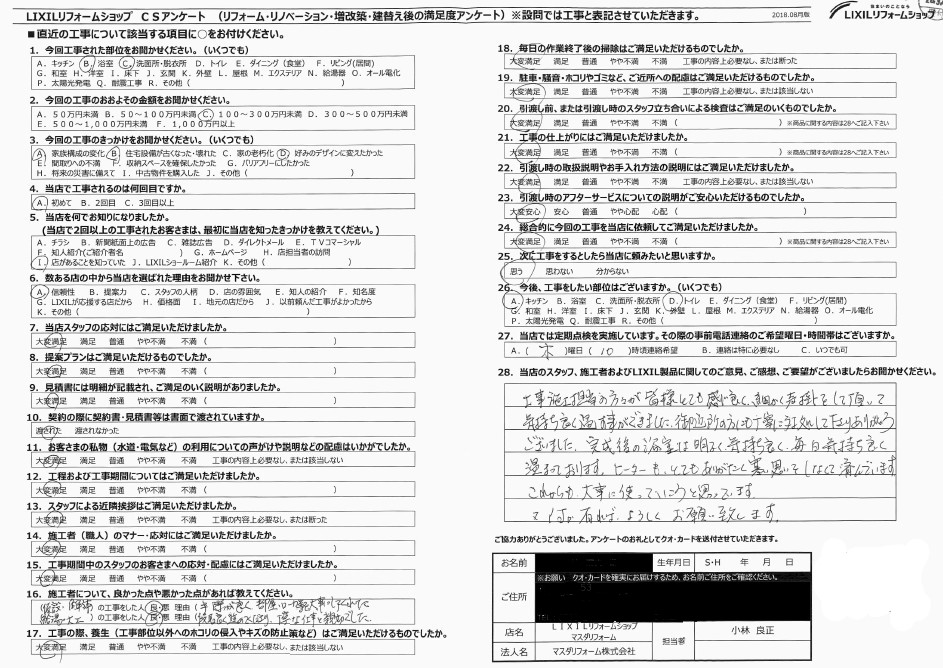 LIXILリフォームショップ CSアンケート (リフォーム・リノベーション・増改築・建替え後の満足度アンケート)※設問では工事と表記させていただきます。
2018.08月版
住まいのことなら
LIXILリフォームショップ
■直近の工事について該当する項目に○をお付けください。
1. 今回工事された部位をお聞かせください。(いくつでも)
A. キッチン B. 浴室 C. 洗面所・脱衣所 D. トイレ E. ダイニング(食堂) F. リビング(居間)
G. 和室 H. 洋室 I. 床下 J. 玄関 K. 外壁 L. 屋根 M. エクステリア N. 給湯器 O. オール電化
P. 太陽光発電 Q. 耐震工事 R. その他( )
2. 今回の工事のおおよその金額をお聞かせください。
A. 50万円未満 B. 50~100万円未満 C. 100~300万円未満 D. 300~500万円未満
E. 500~1,000万円未満 F. 1,000万円以上
3. 今回の工事のきっかけをお聞かせください。(いくつでも)
A. 家族構成の変化 B. 住宅設備が古くなった・壊れた C. 家の老朽化 D. 好みのデザインに変えたかった
E. 間取りへの不満 F. 収納スペースを確保したかった G. バリアフリーにしたかった
H. 将来の災害に備えて I. 中古物件を購入した J. その他( )
4. 当店で工事されるのは何回目ですか。
A. 初めて B. 2回目 C. 3回目以上
5. 当店を何でお知りになりましたか。
(当店で2回以上の工事されたお客さまは、最初に当店を知ったきっかけを教えてください。)
A. チラシ B. 新聞紙面上の広告 C. 雑誌広告 D. ダイレクトメール E. TVコマーシャル
F. 知人紹介(ご紹介者名 ) G. ホームページ H. 店担当者の訪問
I. 店があることを知っていた J. LIXILショールーム紹介 K. その他( )
6. 数ある店の中から当店を選ばれた理由をお聞かせ下さい。
A. 信頼性 B. 提案力 C. スタッフの人柄 D. 店の雰囲気 E. 知人の紹介 F. 知名度
G. LIXILが応援する店だから H. 価格面 I. 地元の店だから J. 以前頼んだ工事がよかったから
K. その他( )
7. 当店スタッフの応対にはご満足いただけましたか。
大変満足 満足 普通 やや不満 不満 ( )
8. 提案プランはご満足いただけるものでしたか。
大変満足 満足 普通 やや不満 不満 ( )
9. 見積書には明細が記載され、ご満足のいく説明がありましたか。
大変満足 満足 普通 やや不満 不満 ( )
10. 契約の際に契約書・見積書等は書面で渡されていますか。
渡された 渡されなかった
11. お客さまの私物(水道・電気など)の利用についての声がけや説明などの配慮はいかがでしたか。
大変満足 満足 普通 やや不満 不満 工事の内容上必要なし、または該当しない
12. 工程および工事期間についてはご満足いただけましたか。
大変満足 満足 普通 やや不満 不満 ( )
13. スタッフによる近隣挨拶はご満足いただけましたか。
大変満足 満足 普通 やや不満 不満 工事の内容上必要なし、または断った
14. 施工者(職人)のマナー・応対にはご満足いただけましたか。
大変満足 満足 普通 やや不満 不満 ( )
15. 工事期間中のスタッフのお客さまへの応対・配慮にはご満足いただけましたか。
大変満足 満足 普通 やや不満 不満 ( )
16. 施工者について、良かった点や悪かった点があれば教えてください。
の工事をした人 良・悪 理由(
の工事をした人 良・悪 理由(
17. 工事の際、養生(工事部位以外へのホコリの侵入やキズの防止策など)はご満足いただけるものでしたか。
大変満足 満足 普通 やや不満 不満 工事の内容上必要なし、または該当しない
18. 毎日の作業終了後の掃除はご満足いただけるものでしたか。
大変満足 満足 普通 やや不満 不満 工事の内容上必要なし、または断った
19. 駐車・騒音・ホコリやゴミなど、ご近所への配慮はご満足いただけるものでしたか。
大変満足 満足 普通 やや不満 不満 工事の内容上必要なし、または該当しない
20. 引渡し前、または引渡し時のスタッフ立ち合いによる検査はご満足のいくものでしたか。
大変満足 満足 普通 やや不満 不満 ( ) ※商品に関する内容は28へご記入下さい
21. 工事の仕上がりにはご満足いただけましたか。
大変満足 満足 普通 やや不満 不満 ( ) ※商品に関する内容は28へご記入下さい
22. 引渡し時の取扱説明やお手入れ方法の説明にはご満足いただけましたか。
大変満足 満足 普通 やや不満 不満 工事の内容上必要なし、または該当しない
23. 引渡し時のアフターサービスについての説明がご安心いただけるものでしたか。
大変安心 安心 普通 やや心配 心配 ( )
24. 総合的に今回の工事を当店に依頼してご満足いただけましたか。
大変満足 満足 普通 やや不満 不満 ( ) ※商品に関する内容は28へご記入下さい
25. 次に工事をするとしたら当店に頼みたいと思いますか。
思う 思わない 分からない
26. 今後、工事をしたい部位はございますか。(いくつでも)
A. キッチン B. 浴室 C. 洗面所・脱衣所 D. トイレ E. ダイニング(食堂) F. リビング(居間)
G. 和室 H. 洋室 I. 床下 J. 玄関 K. 外壁 L. 屋根 M. エクステリア N. 給湯器 O. オール電化
P. 太陽光発電 Q. 耐震工事 R. その他( )
27. 当店では定期点検を実施しています。その際の事前電話連絡のご希望曜日・時間帯はございますか。
A. ( 木 )曜日 ( 10 )時頃連絡希望 B. 連絡は特に必要なし C. いつでも可
28. 当店のスタッフ、施工者およびLIXIL製品に関してのご意見、ご感想、ご要望がございましたらお聞かせください。
ございました。完成後の浴室は明るく気持ち良く、毎日気持ち良く
これからも大事に使っていこうと思っています。
ご協力ありがとうございました。アンケートのお礼としてクオ・カードを送付させていただきます。
お名前 生年月日 S・H 年 月 日
※お願い クオ・カードを確実にお届けするため、お名前ご住所をご確認ください。
ご住所
店名 LIXILリフォームショップ マスダリフォーム 担当者 小林 良正
法人名 マスダリフォーム株式会社